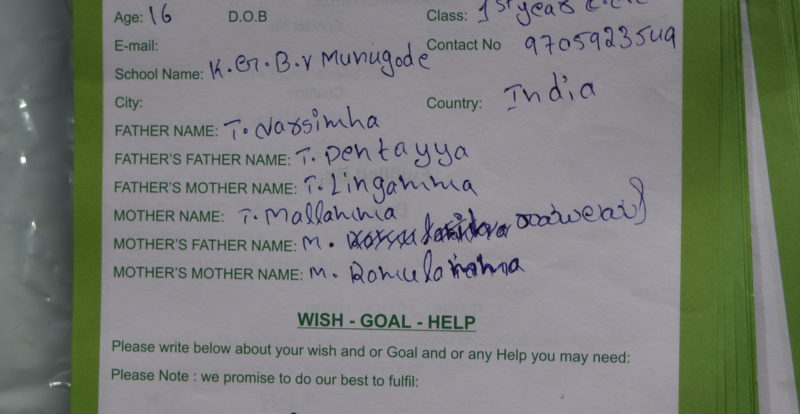 Age: 16 D.O.B Class: 1st year
E-mail: Contact No 9705923549
School Name: K.G.B.V Munugode
City: Country: India
FATHER NAME: T. Narsimha
FATHER'S FATHER NAME: T. Pentayya
FATHER'S MOTHER NAME: T. Lingamma
MOTHER NAME: T. Mallamma
MOTHER'S FATHER NAME: M.
MOTHER'S MOTHER NAME: M.
WISH - GOAL - HELP
Please write below about your wish and or Goal and or any Help you may need:
Please Note : we promise to do our best to fulfil: